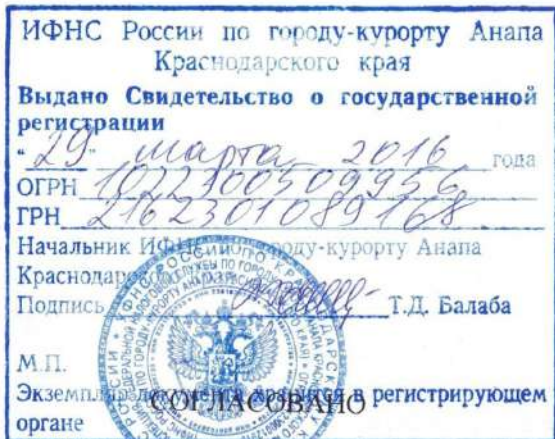 ИФНС России по городу-курорту Анапа
Краснодарского края
Выдано Свидетельство о государственной
регистрации
"29" марта 2016 года
ОГРН 1022300509956
ГРН 2162301089168
Начальник ИФНС по городу-курорту Анапа
Краснодарского
Подпись Т.Д. Балаба
М.П.
Экземпляр документа хранится в регистрирующем
СОГЛАСОВАНО
органе